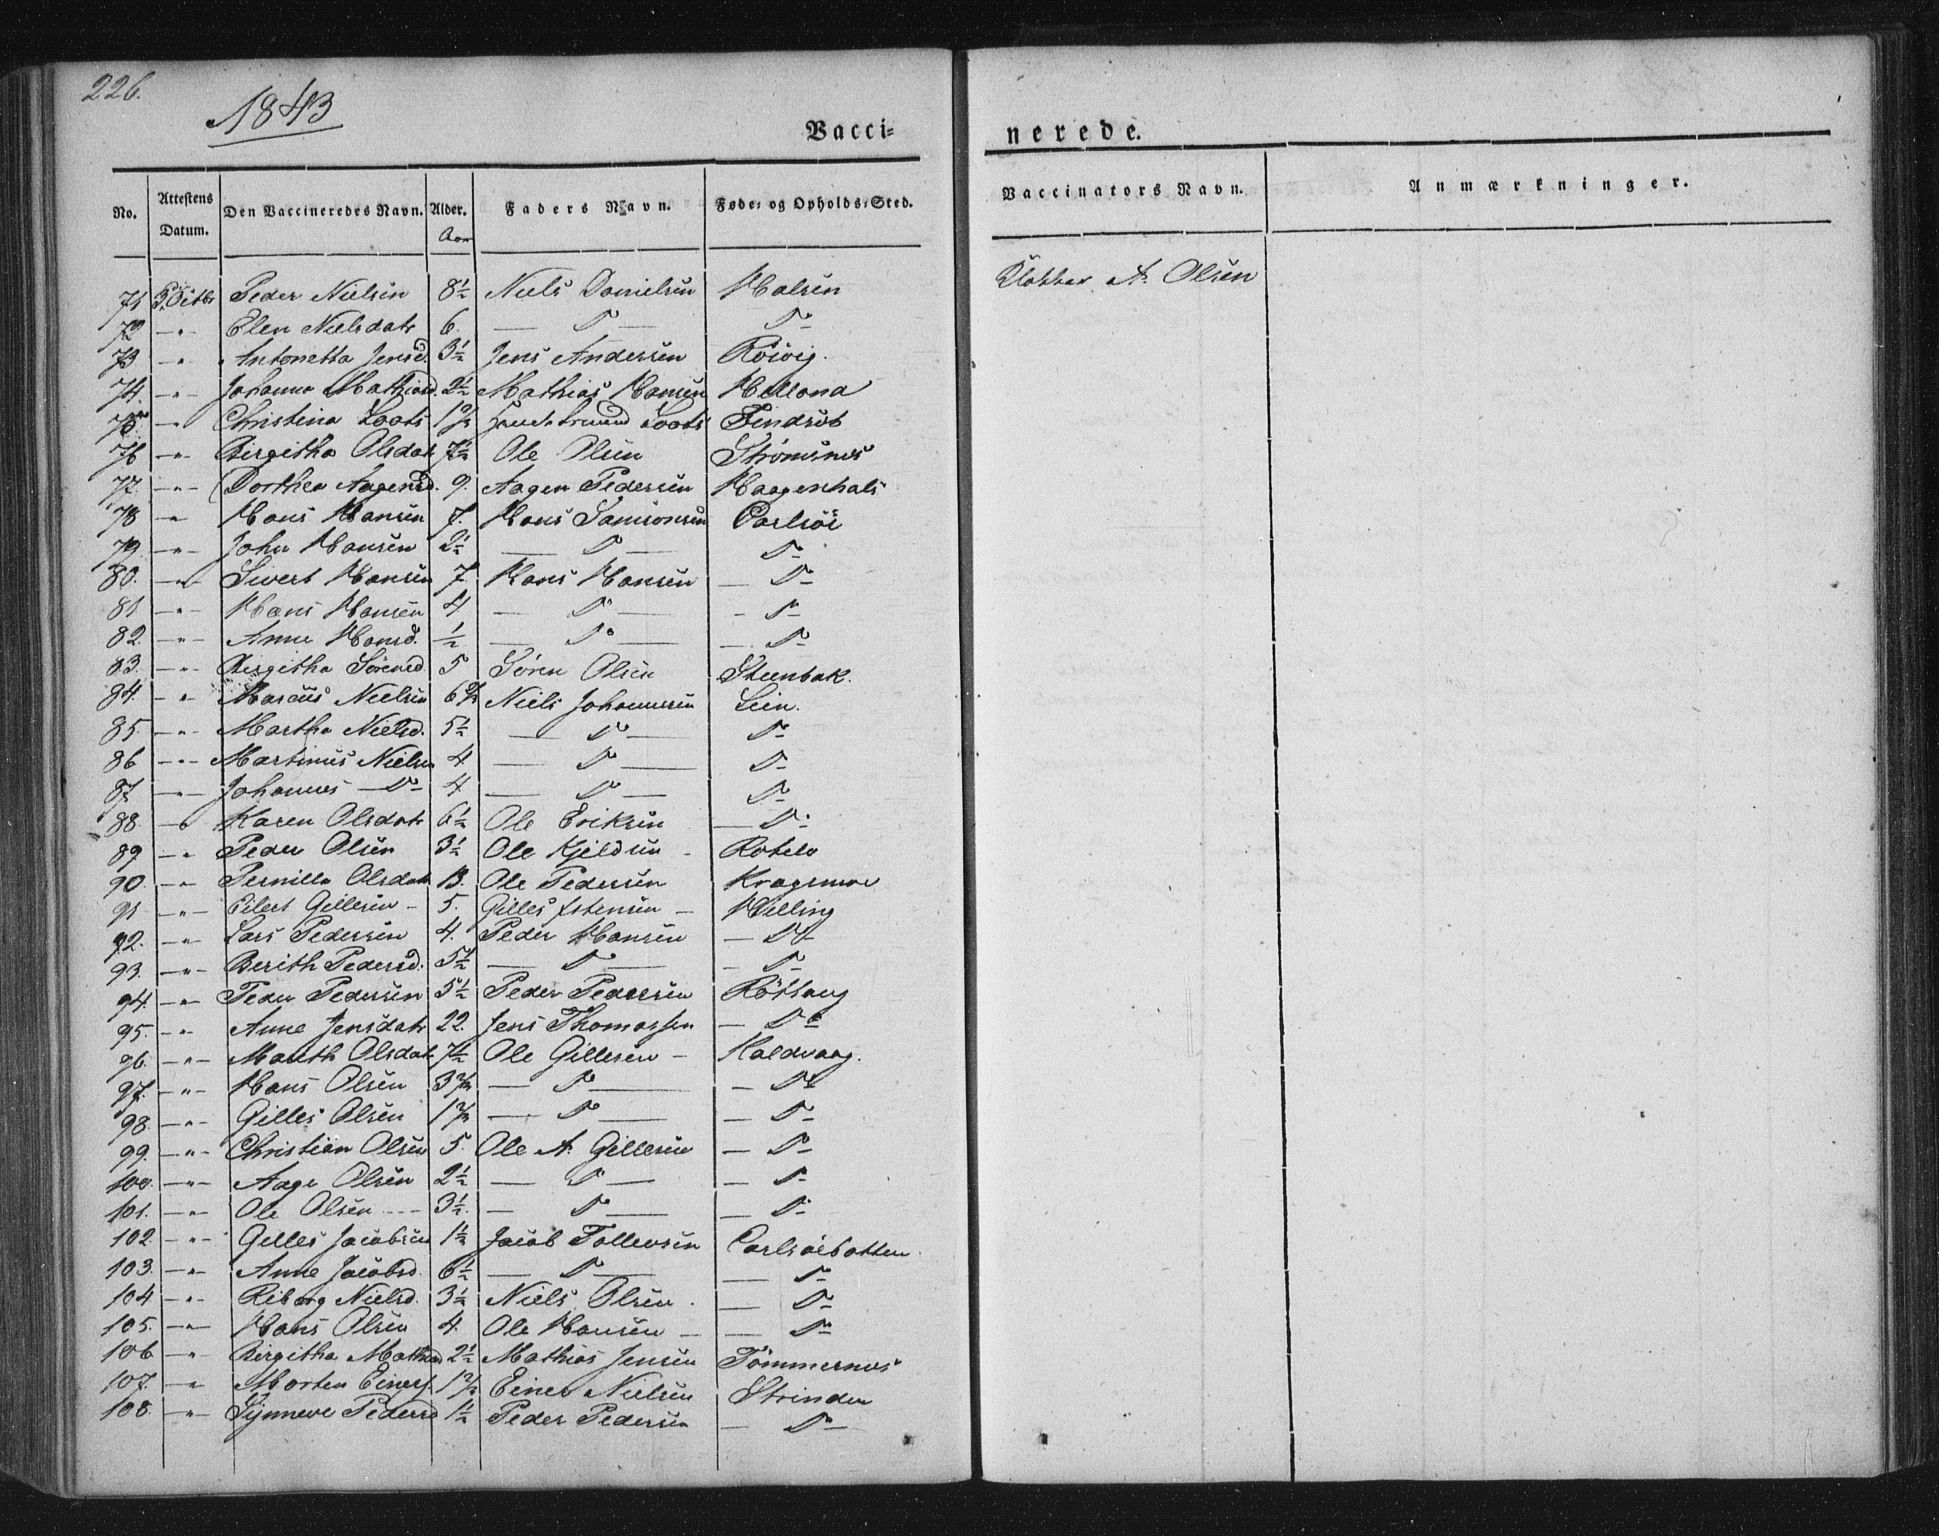 226.
1843
Vacci=
nerede.
No. Attestens Datum. Den Vaccineredes Navn. Alder. Aar Faders Navn. Føde- og Opholds-Sted.
Vaccinators Navn. Anmærkninger.
71 Peder Nielsen 8½ Niels Danielsen Halsen
Klokker A. Olsen
72 -"- Elen Nielsdatr 6. — D° — D°-
73 " Antonetta Jensd. 3½ Jens Andersen Röivig.
74. -"- Johanna Mathiasd. 2½ Mathias Hansen Hellona
75 -"- Christina Loots Loots Findsöt
76 -"- Birgitha Olsdatr 7½ Ole Olsen Strömsnes
77. -"- Dorthea Aagensd. 9. Aagen Pedersen Haagenhals
78 " Hans Hansen 7. Hans Samsonsen Carlsöe
79. -"- John Hansen 2½ — D° — D°-
80. -"- Sivert Hansen 7. Hans Hansen — D°-
81. -"- Hans Hansen 4. — D° — - D°-
82. -"- Anne Hansd. ½ — D° — - D°-
83. -"- Birgitha Sörensd. 5 Sören Olsen Steenbak.
84. " Marcus Nielsen 6 Niels Johannesen Lein.
85. -"- Martha Nielsd. 5½ — D° — D°-
86 -"- Martinus Nielsen 4 — D° — D°-
87. -"- Johannes — D°- 4 — D° — D°-
88. Karen Olsdatr 6½ Ole Eriksen — D°-
89 -"- Peder Olsen 3½ Ole Kjeldsen -
90. -"- Pernilla Olsdatr 13. Ole Pedersen Kragsmoe
91 -"- Eilert Gillesen - 5. Gilles Estensen - Helling
92. -"- Lars Pedersen 4. Peder Hansen — D°-
93. -"- Berith Pedersd. 5½ — D° — — D°-
94. -"- Peder Pedersen 5½ Peder Pedersen Röttang
95. -"- Anne Jensdatr 22. Jens Thomassen — D°
96. -"- Mareth Olsdatr 7½ Ole Gillesen - Kaldvaag.
97. -"- Hans Olsen 3 — D° — — D°
98. -"- Gilles Olsen 1 — D° — — D°-
99. -"- Christian Olsen 5. Ole A. Gillesen — D°-
100. -"- Aage Olsen 2½ — D° — — D°-
101. -"- Ole Olsen - - - 3½. — D° — — D°-
102. -"- Gilles Jacobsen 1½ Jacob Tollevsen Carlsöebotten.
103. -"- Anne Jacobsd. 6½ — D° — — D°-
104 -"- Riborg Nielsd. 3½ Niels Olsen. — D°-
105. -"- Hans Olsen 4. Ole Hansen — — D°-
106 -"- Birgitha Mathiasd 2½ Mathias Jensen Tömmernes
107. " Morten Einers. 1 Einer Nielsen Strinden
108. -"- Synneve Pedersd 1½ Peder Pedersen — D°-